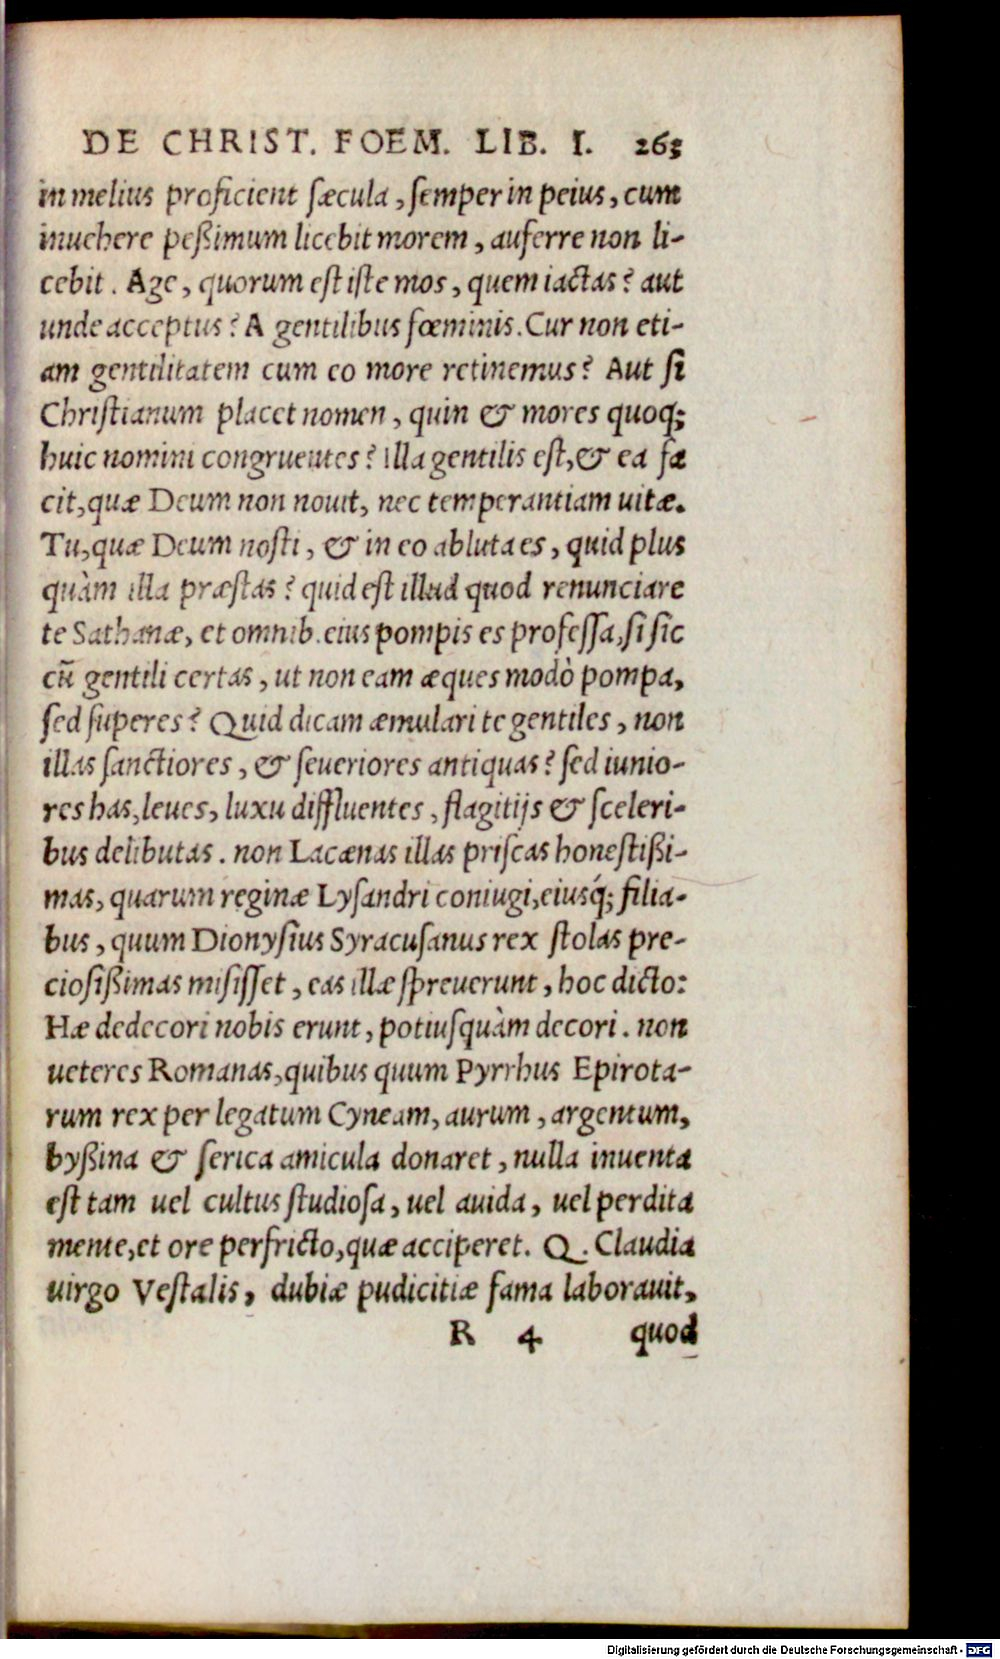 DE CHRIST. FOEM. LIB. I. 263
in melius proficient sæcula, semper in peius, cum
inuehere peßimum licebit morem, auferre non li-
cebit. Age, quorum est iste mos, quem iactas? aut
unde acceptus? A gentilibus fœminis. Cur non eti-
am gentilitatem cum eo more retinemus? Aut si
Christianum placet nomen, quin & mores quoq;
huic nomini congruentes? illa gentilis est, & ea fa
cit, quæ Deum non nouit, nec temperantiam uitæ.
Tu, quæ Deum nosti, & in eo abluta es, quid plus
quàm illa præstas? quid est illud quod renunciare
te Sathanæ, et omnib. eius pompis es professa, si sic
cū gentili certas, ut non eam æques modò pompa,
sed superes? Quid dicam æmulari te gentiles, non
illas sanctiores, & seueriores antiquas? sed iunio-
res has, leues, luxu diffluentes, flagitijs & sceleri-
bus delibutas. non Lacænas illas priscas honestißi-
mas, quarum reginæ Lysandri coniugi, eiusq́; filia-
bus, quum Dionysius Syracusanus rex stolas pre-
ciosißimas misisset, eas illæ spreuerunt, hoc dicto:
Hæ dedecori nobis erunt, potiusquàm decori. non
ueteres Romanas, quibus quum Pyrrhus Epirota-
rum rex per legatum Cyneam, aurum, argentum,
byßina & serica amicula donaret, nulla inuenta
est tam uel cultus studiosa, uel auida, uel perdita
mente, et ore perfricto, quæ acciperet. Q. Claudia
uirgo Vestalis, dubiæ pudicitiæ fama laborauit,
R 4 quod
Digitalisierung gefördert durch die Deutsche Forschungsgemeinschaft - DFG